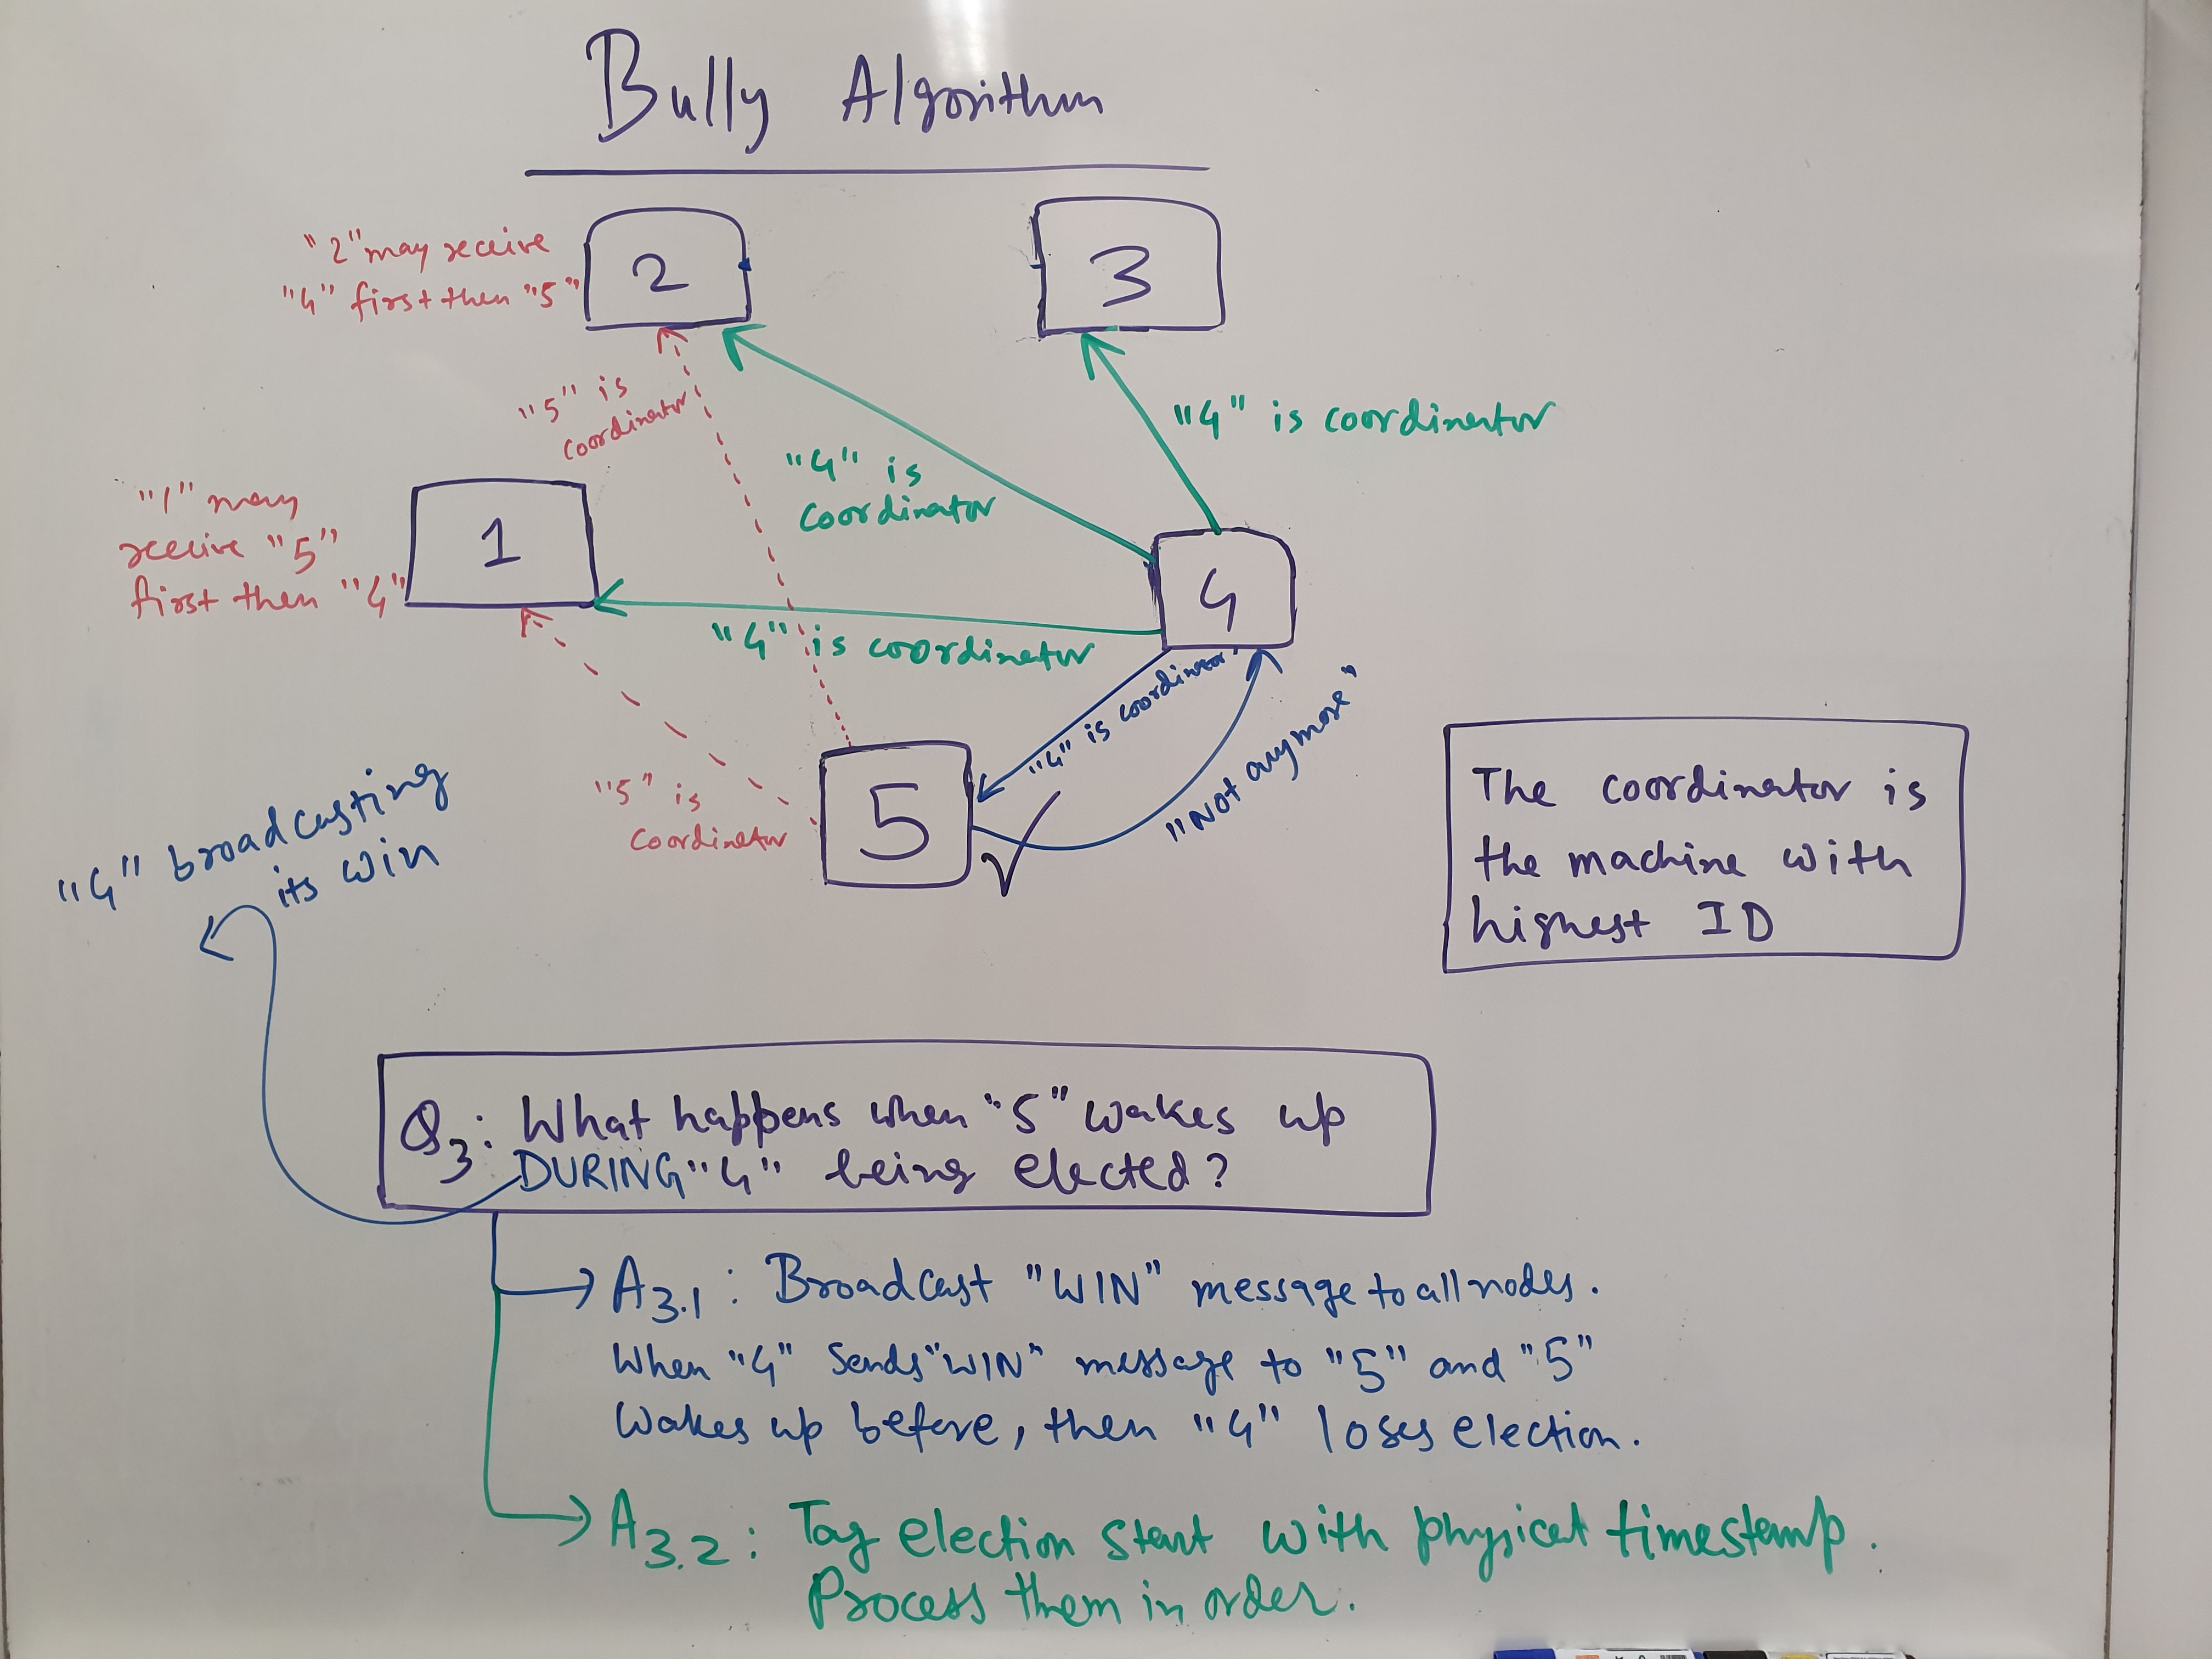 Bully Algorithm
"2" may receive
"4" first then "5"
2
3
"5" is
coordinator
"4" is coordinator
"4" is
coordinator
"1" may
receive "5"
first then "4"
1
4
"4" is coordinator
"4" is coordinator"
"Not anymore"
5
"5" is
coordinator
"4" broadcasting
its win
The coordinator is
the machine with
highest ID
Q3: What happens when "5" wakes up
DURING "4" being elected?
A3.1: Broadcast "WIN" message to all nodes.
When "4" sends "WIN" message to "5" and "5"
wakes up before, then "4" loses election.
A3.2: Tag election start with physical timestamp.
Process them in order.